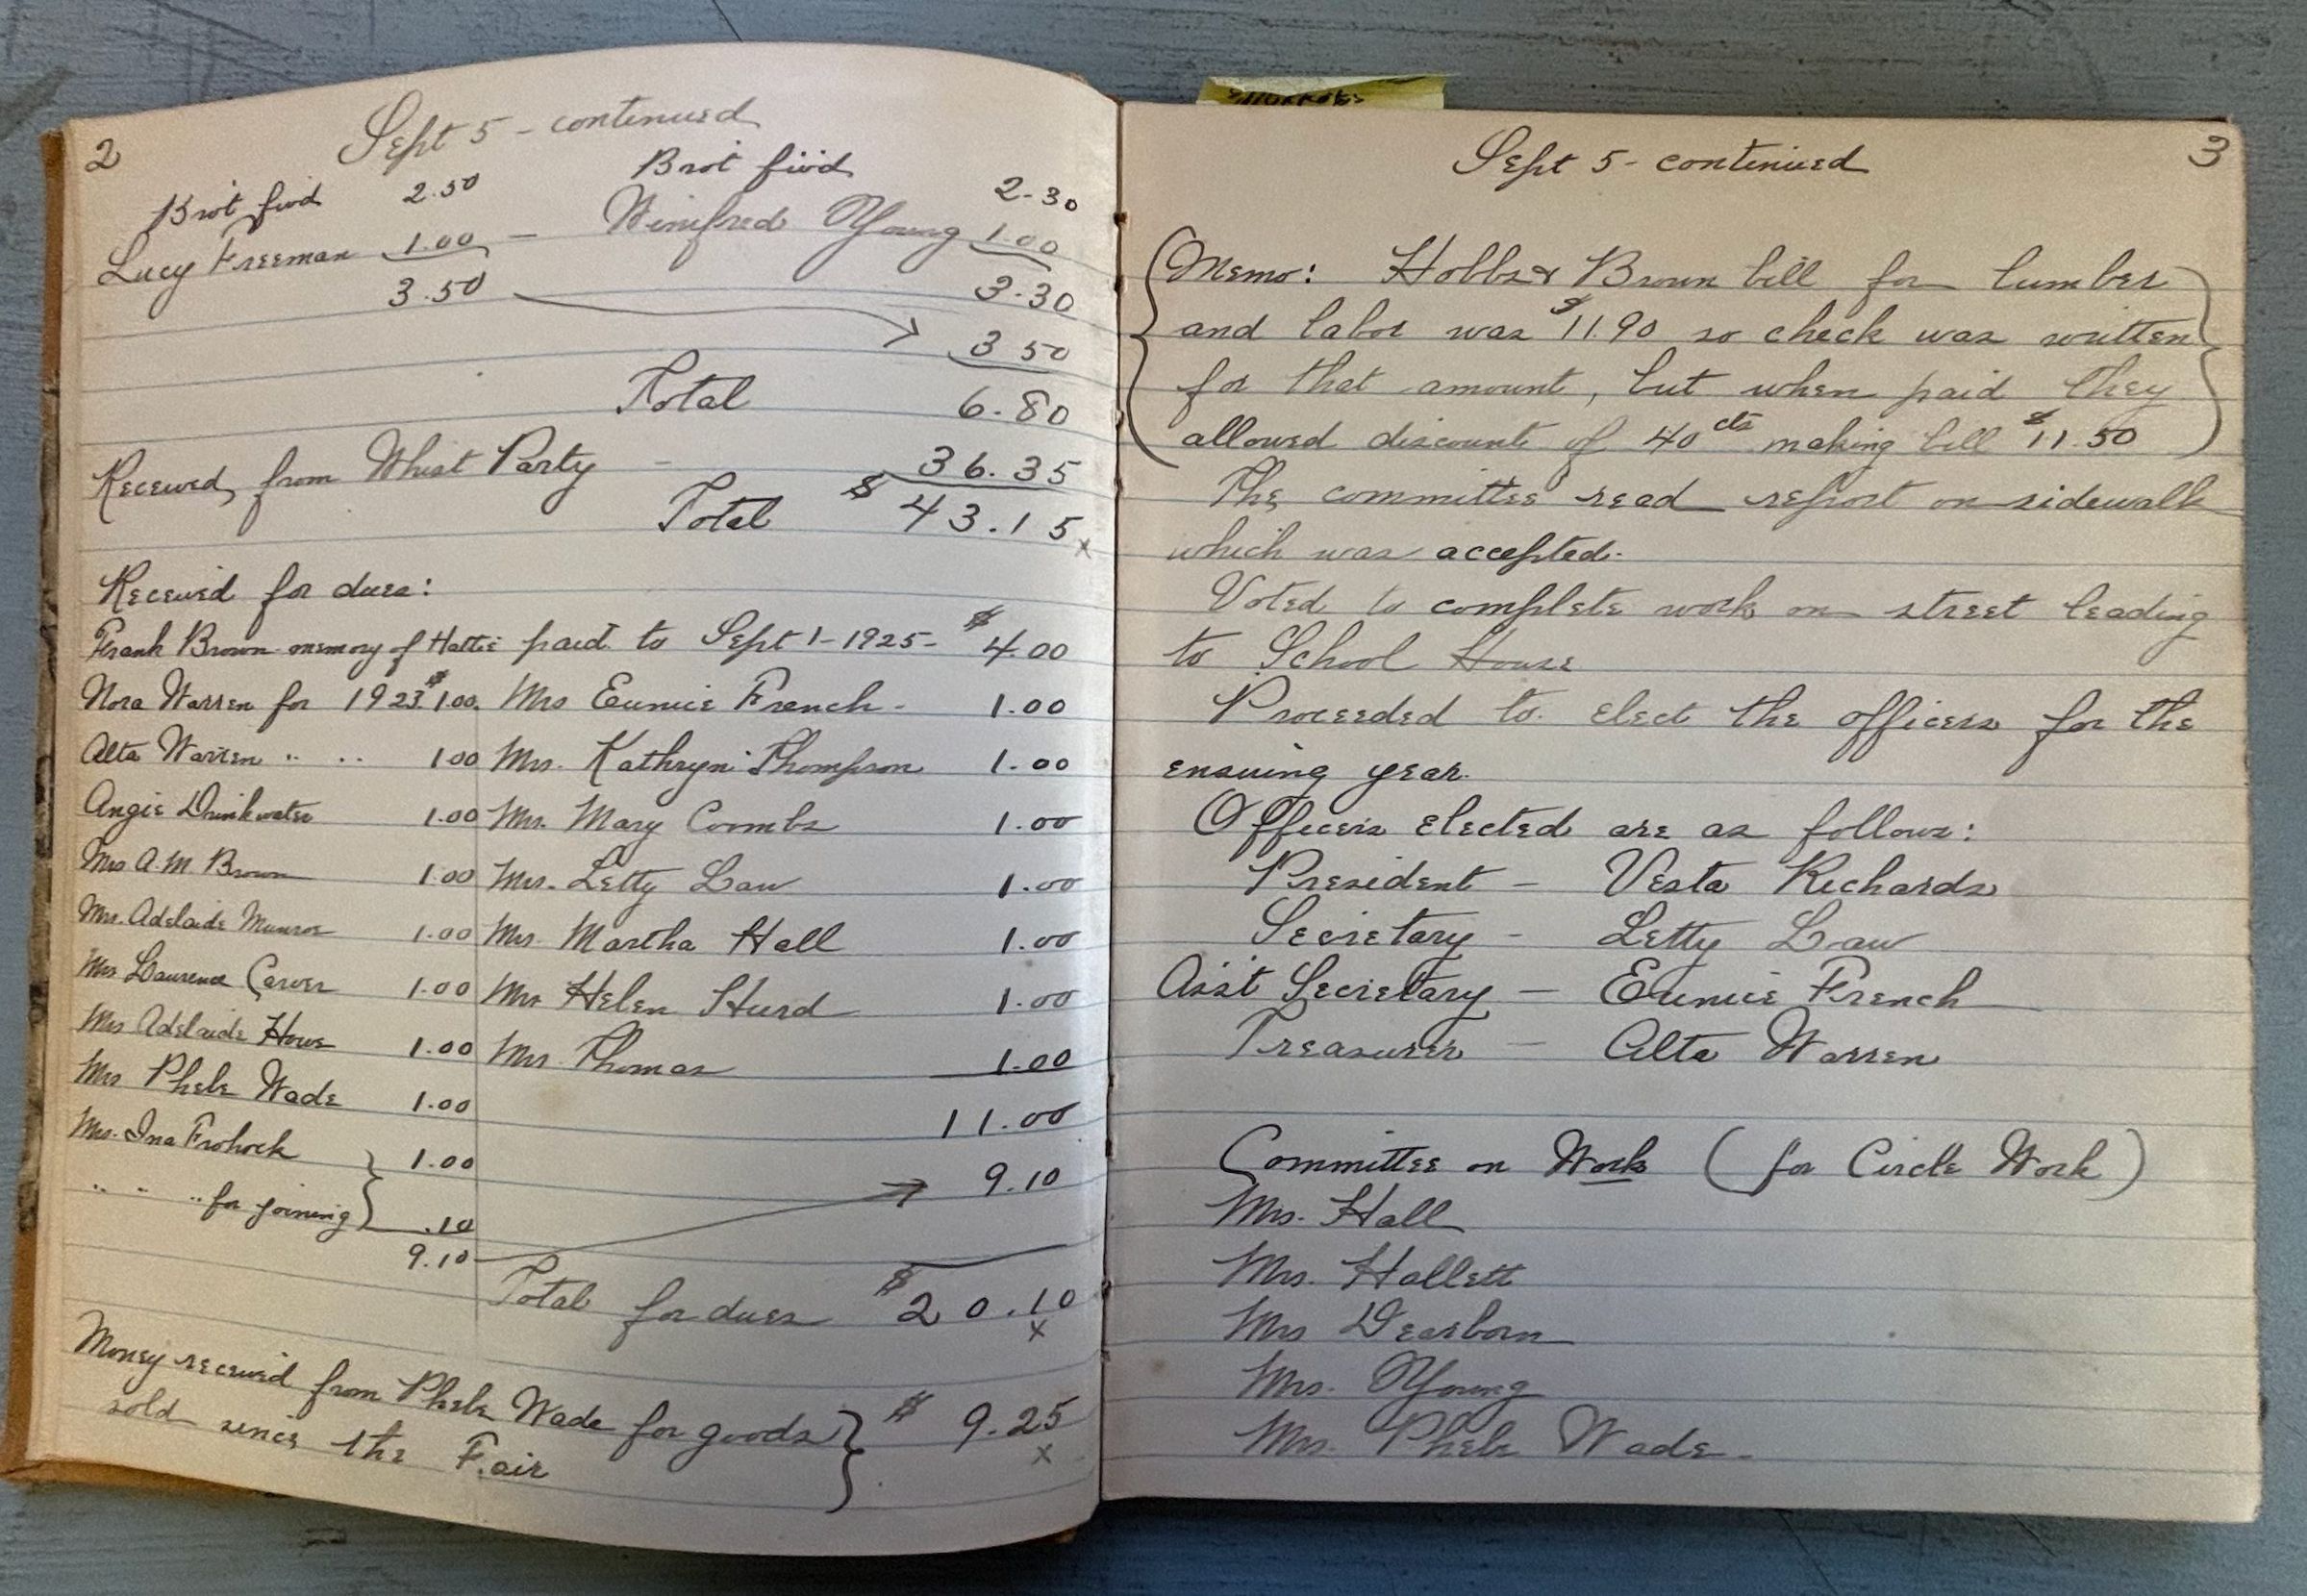 2
Sept 5 - continued
Brot fwd 2.50 Brot fwd 2.30
Lucy Freeman 1.00 - Winifred Young 1.00
3.50 3.30
3 50
Total 6.80
Received from Whist Party - 36.35
Total $ 43.15
x
Received for dues:
Frank Brown memory of Hattie paid to Sept 1-1925- $4.00
Nora Warren for 1923 $1.00 Mrs Eunice French - 1.00
Alta Warren " " 1.00 Mrs. Kathryn Thompson 1.00
Angie Drinkwater 1.00 Mrs. Mary Coombs 1.00
Mrs A. M Brown 1.00 Mrs. Letty Law 1.00
Mrs. Adelaide Munroe 1.00 Mrs. Martha Hall 1.00
Mrs Laurence Carver 1.00 Mrs Helen Hurd 1.00
Mrs Adelaide Howe 1.00 Mrs. Thomas 1.00
Mrs Phebe Wade 1.00 11.00
Mrs. Ina Frohock 1.00 9.10
" " " for joining .10
9.10
Total for dues $20.10
x
Money received from Phebe Wade for goods $ 9.25
sold since the Fair x
Sept 5 - continued 3
(Memo: Hobbs & Brown bill for lumber
and labor was $11.90 so check was written
for that amount, but when paid they
allowed discounte of 40 cts making bill $11.50)
The committee read report on sidewalk
which was accepted.
Voted to complete work on street leading
to School House
Proceeded to elect the officers for the
ensuing year.
Officers elected are as follows:
President - Vesta Richards
Secretary - Letty Law
Ass't Secretary - Eunice French
Treasurer - Alta Warren
Committee on Work (for Circle Work)
Mrs. Hall
Mrs. Hallett
Mrs Dearborn
Mrs. Young
Mrs. Phebe Wade.